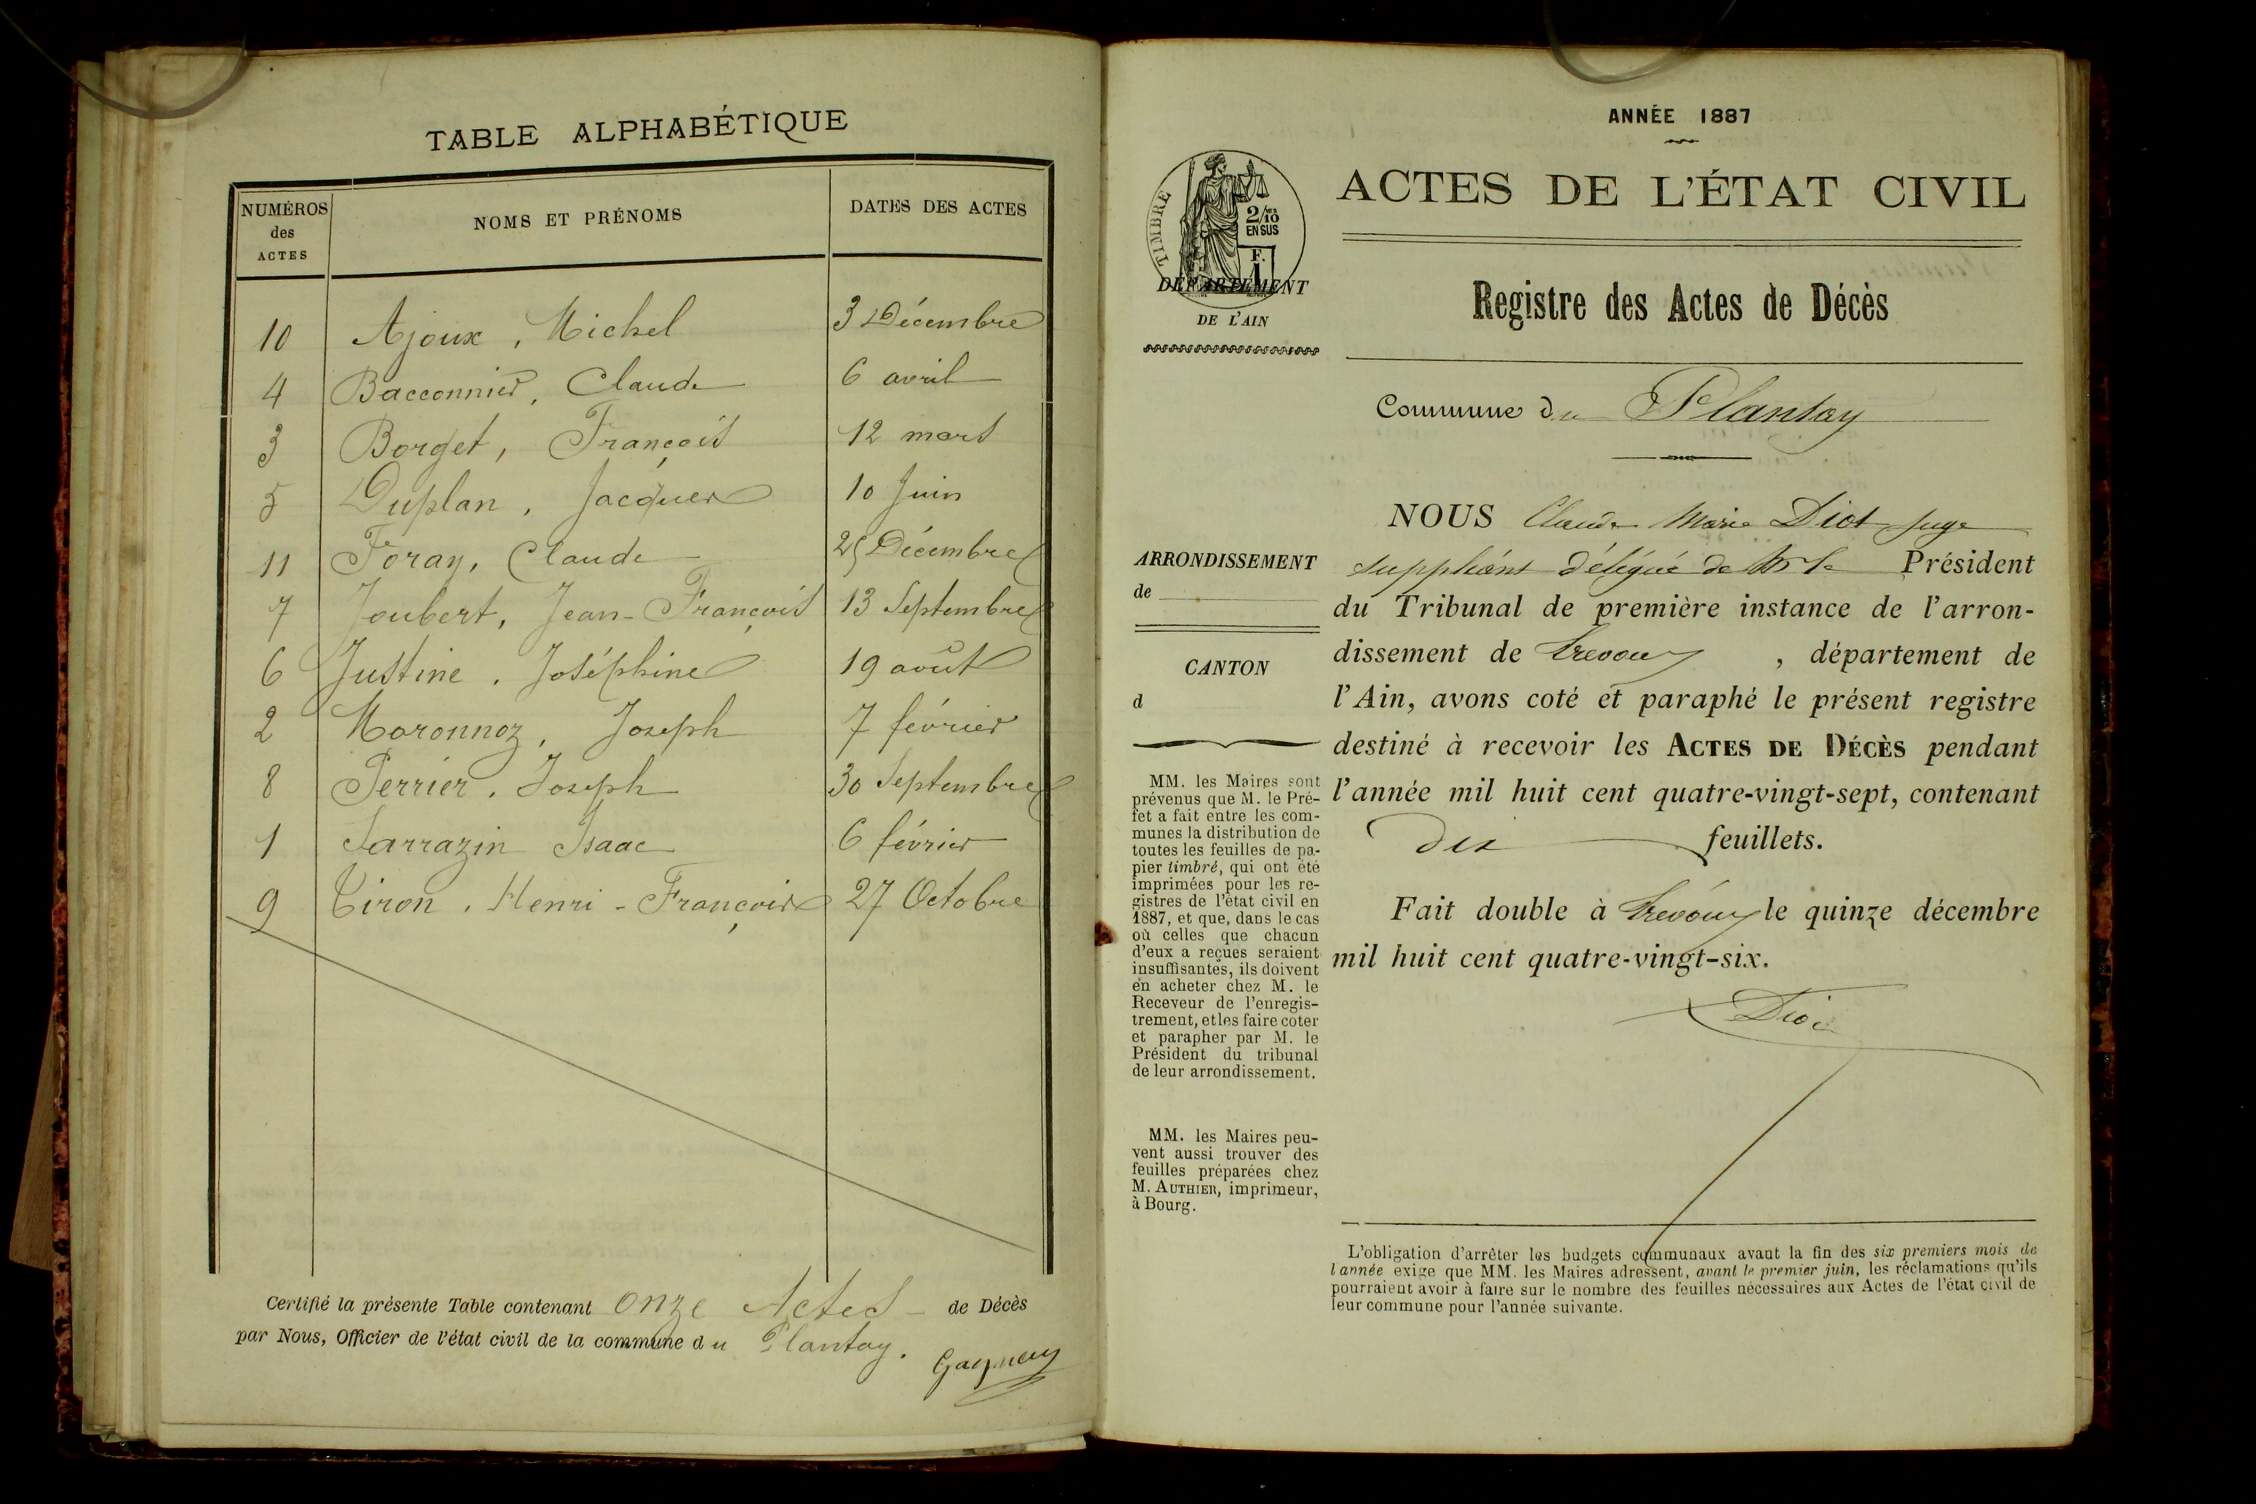 TABLE ALPHABÉTIQUE
NUMÉROS des ACTES NOMS ET PRÉNOMS DATES DES ACTES
10 Ajoux, Michel 3 Décembre
4 Bacconnier, Claude 6 avril
3 Borget, François 12 mars
5 Duplan, Jacques 10 Juin
11 Foray, Claude 25 Décembre
7 Joubert, Jean-François 13 Septembre
6 Justine, Joséphine 19 août
2 Moronnoz, Joseph 7 février
8 Perrier, Joseph 30 Septembre
1 Sarrazin Isaac 6 février
9 Tiron, Henri-François 27 Octobre
Certifié la présente Table contenant onze Actes de Décès
par Nous, Officier de l'état civil de la commune du Plantay.
ANNÉE 1887
TIMBRE
2/10
EN SUS
F.
1
DÉPARTEMENT
DE L'AIN
ACTES DE L'ÉTAT CIVIL
Registre des Actes de Décès
Commune du Plantay
ARRONDISSEMENT
de
CANTON
d
MM. les Maires sont
prévenus que M. le Pré-
fet a fait entre les com-
munes la distribution de
toutes les feuilles de pa-
pier timbré, qui ont été
imprimées pour les re-
gistres de l'état civil en
1887, et que, dans le cas
où celles que chacun
d'eux a reçues seraient
insuffisantes, ils doivent
en acheter chez M. le
Receveur de l'enregis-
trement, et les faire coter
et parapher par M. le
Président du tribunal
de leur arrondissement.
MM. les Maires peu-
vent aussi trouver des
feuilles préparées chez
M. AUTHIER, imprimeur,
à Bourg.
NOUS Claude Marie Diot Juge
suppléant délégué de Mr le Président
du Tribunal de première instance de l'arron-
dissement de Trevoux, département de
l'Ain, avons coté et paraphé le présent registre
destiné à recevoir les ACTES DE DÉCÈS pendant
l'année mil huit cent quatre-vingt-sept, contenant
dix feuillets.
Fait double à Trévoux le quinze décembre
mil huit cent quatre-vingt-six.
Diot
L'obligation d'arrêter les budgets communaux avant la fin des six premiers mois de
l'année exige que MM. les Maires adressent, avant le premier juin, les réclamations qu'ils
pourraient avoir à faire sur le nombre des feuilles nécessaires aux Actes de l'état civil de
leur commune pour l'année suivante.